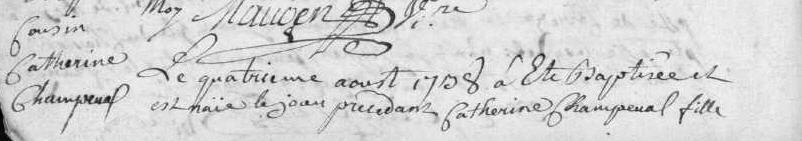 Moy Maugen
Cousin
Catherine
Champeval
Le quatrieme aoust 1738 a Ete Baptisée et
est näie le jour precedant Catherine Champeval fille